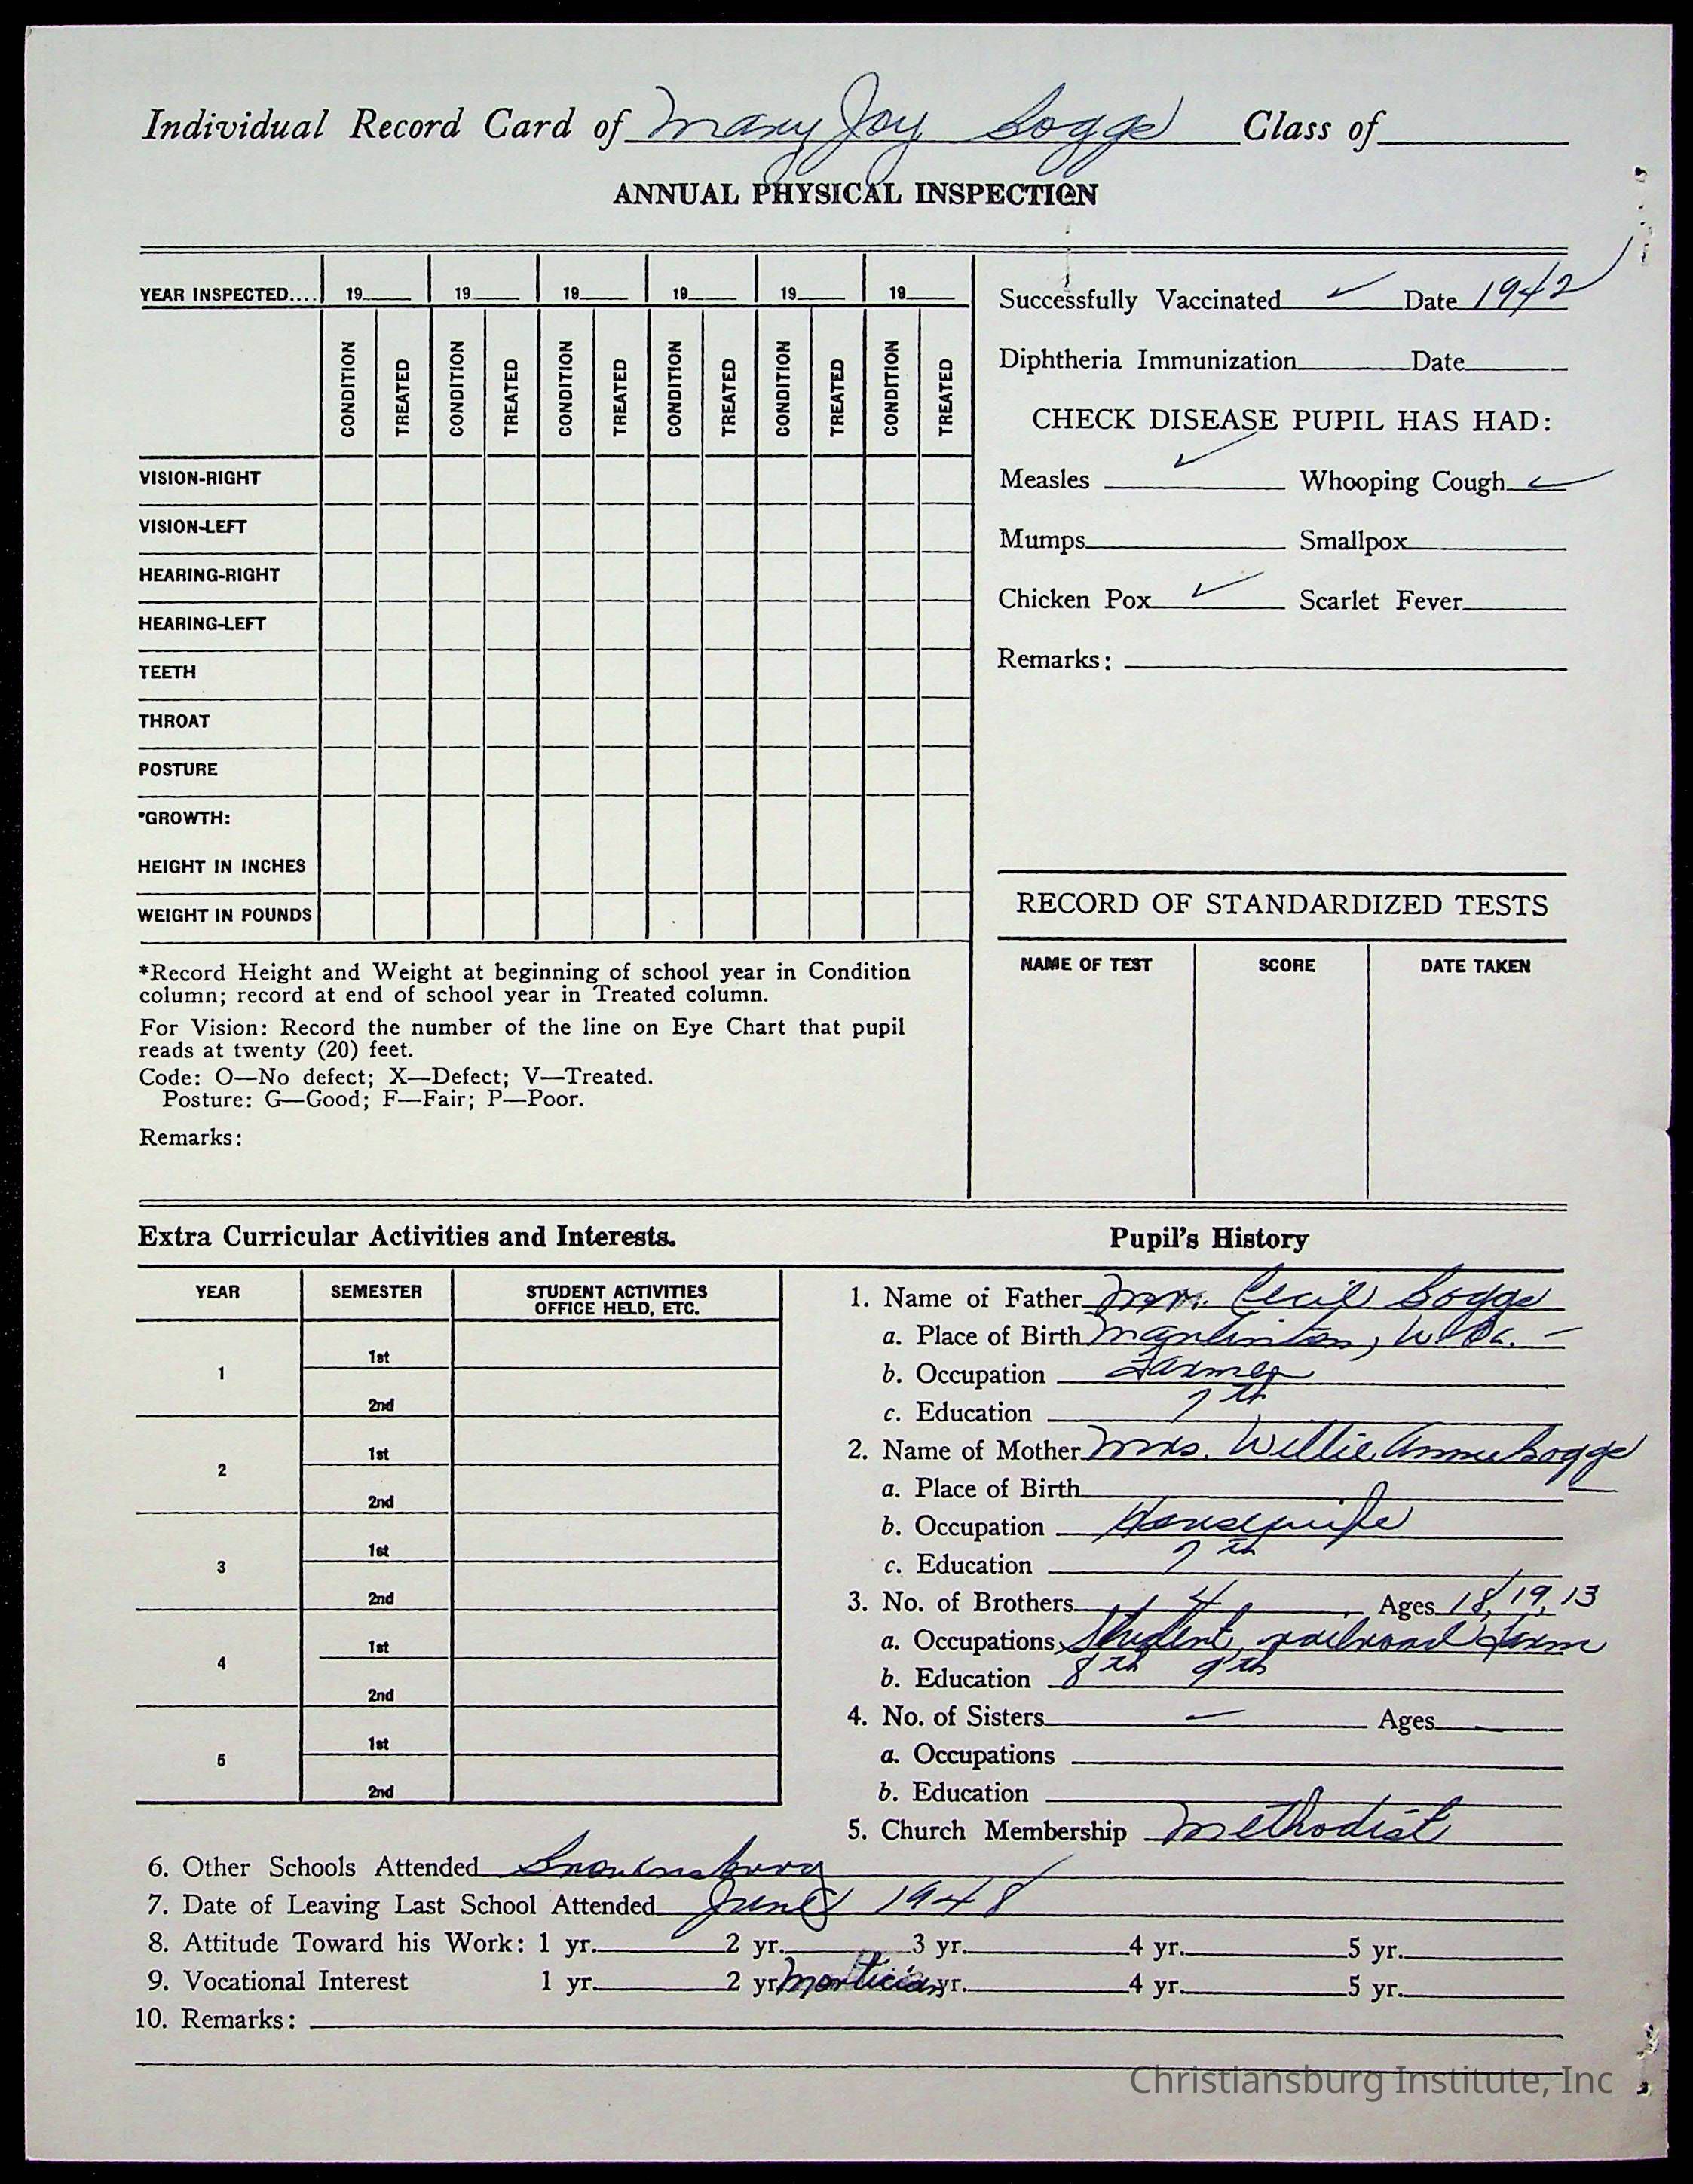 Individual Record Card of Mary Joy Boggs Class of
ANNUAL PHYSICAL INSPECTION
YEAR INSPECTED.... 19 19 19 19 19 19
CONDITION TREATED CONDITION TREATED CONDITION TREATED CONDITION TREATED CONDITION TREATED CONDITION TREATED
VISION-RIGHT
VISION-LEFT
HEARING-RIGHT
HEARING-LEFT
TEETH
THROAT
POSTURE
*GROWTH:
HEIGHT IN INCHES
WEIGHT IN POUNDS
*Record Height and Weight at beginning of school year in Condition
column; record at end of school year in Treated column.
For Vision: Record the number of the line on Eye Chart that pupil
reads at twenty (20) feet.
Code: O—No defect; X—Defect; V—Treated.
Posture: G—Good; F—Fair; P—Poor.
Remarks:
Successfully Vaccinated ✓ Date 1942
Diphtheria Immunization Date
CHECK DISEASE PUPIL HAS HAD:
Measles ✓ Whooping Cough ✓
Mumps Smallpox
Chicken Pox ✓ Scarlet Fever
Remarks:
RECORD OF STANDARDIZED TESTS
NAME OF TEST SCORE DATE TAKEN
Extra Curricular Activities and Interests.
YEAR SEMESTER STUDENT ACTIVITIES
OFFICE HELD, ETC.
1 1st
2nd
2 1st
2nd
3 1st
2nd
4 1st
2nd
5 1st
2nd
Pupil's History
1. Name of Father Mr. Cecil Boggs
a. Place of Birth W. Va. –
b. Occupation Farmer
c. Education 7th
2. Name of Mother Mrs. Willie Annie Boggs
a. Place of Birth
b. Occupation Housewife
c. Education 7th
3. No. of Brothers 4 Ages 18, 19, 13
a. Occupations Student, railroad, farm
b. Education 8th 9th
4. No. of Sisters – Ages –
a. Occupations
b. Education
5. Church Membership Methodist
6. Other Schools Attended
7. Date of Leaving Last School Attended June 1948
8. Attitude Toward his Work: 1 yr. 2 yr. 3 yr. 4 yr. 5 yr.
9. Vocational Interest 1 yr. 2 yr. Mortician yr. 4 yr. 5 yr.
10. Remarks:
Christiansburg Institute, Inc